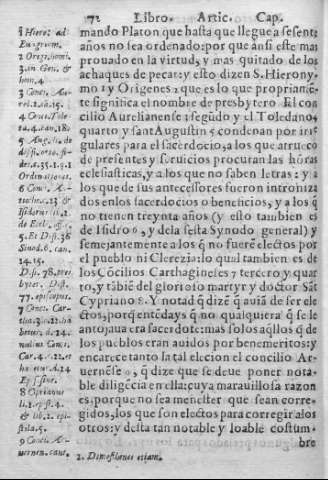 72 Libro. Artic. Cap.
mando Platon que hasta que llegue a sesenta
años no sea ordenado: por que ansi este mas
prouado en la virtud, y mas quitado de los
achaques de pecar: y esto dizen S. Hierony-
mo 1 y Origenes 2 que es lo que propriamẽ-
te significa el nombre de presbytero El con
cilio Aurelianense 3 segũdo y el Toledano 4
quarto y sant Augustin 5 condenan por irre
gulares para el sacerdocio, a los que a trueco
de presentes y seruicios procuran las hõras
ecclesiasticas, y a los que no saben letras: y a
los que de sus antecessores fueron introniza
dos en los sacerdocios o beneficios, y a los q̃
no tienen treynta años (y esto tambien es
de Isidro 6, y de la sesta Synodo general) y
semejantemente a los q̃ no fuerẽ electos por
el pueblo ni Clerezia: lo qual tambien es de
los Cõcilios Carthagineses 7 tercero y quar
to, y tãbiẽ del glorioso martyr y doctor Sãt
Cypriano 8. Y notad q̃ dizẽ q̃ auiã de ser ele
ctos, porq̃ entẽdays q̃ no qualquiera q̃ se le
antojaua era sacerdote: mas solos aq̃llos q̃ de
los pueblos eran auidos por benemeritos: y
encarece tanto la tal elecion el concilio Ar-
uernẽse 9, q̃ dize que se deue poner nota-
ble diligẽcia en ella: cuya marauillosa razon
es: porque no sea menester que sean corre-
gidos, los que son electos para corregir a los
otros: y desta tan notable y loable costum-
bre
1 Hiero: ad
Euagrium.
2 Orige. homi.
3 Conci. Aur-
rel. 2. ca. 15.
4 Conci. Tole
ta. 4. can. 18.
5 Augu. in de
Ordinationes.
6 Conci. A-
Isidorus li. 2.
de Eccl. offi. c.
5. Et Dist. 36
Synod. 6. can.
14. 15.
Dist. 78. pres-
byter. Dist.
77. episcopus.
7 Conci. Car-
8 Cyprianus
li. 1. epist. 4.
& lib. 2. epi-
stola. 5.
9 Conci. A-
uernen. can.
2. Dimosthenes etiam.